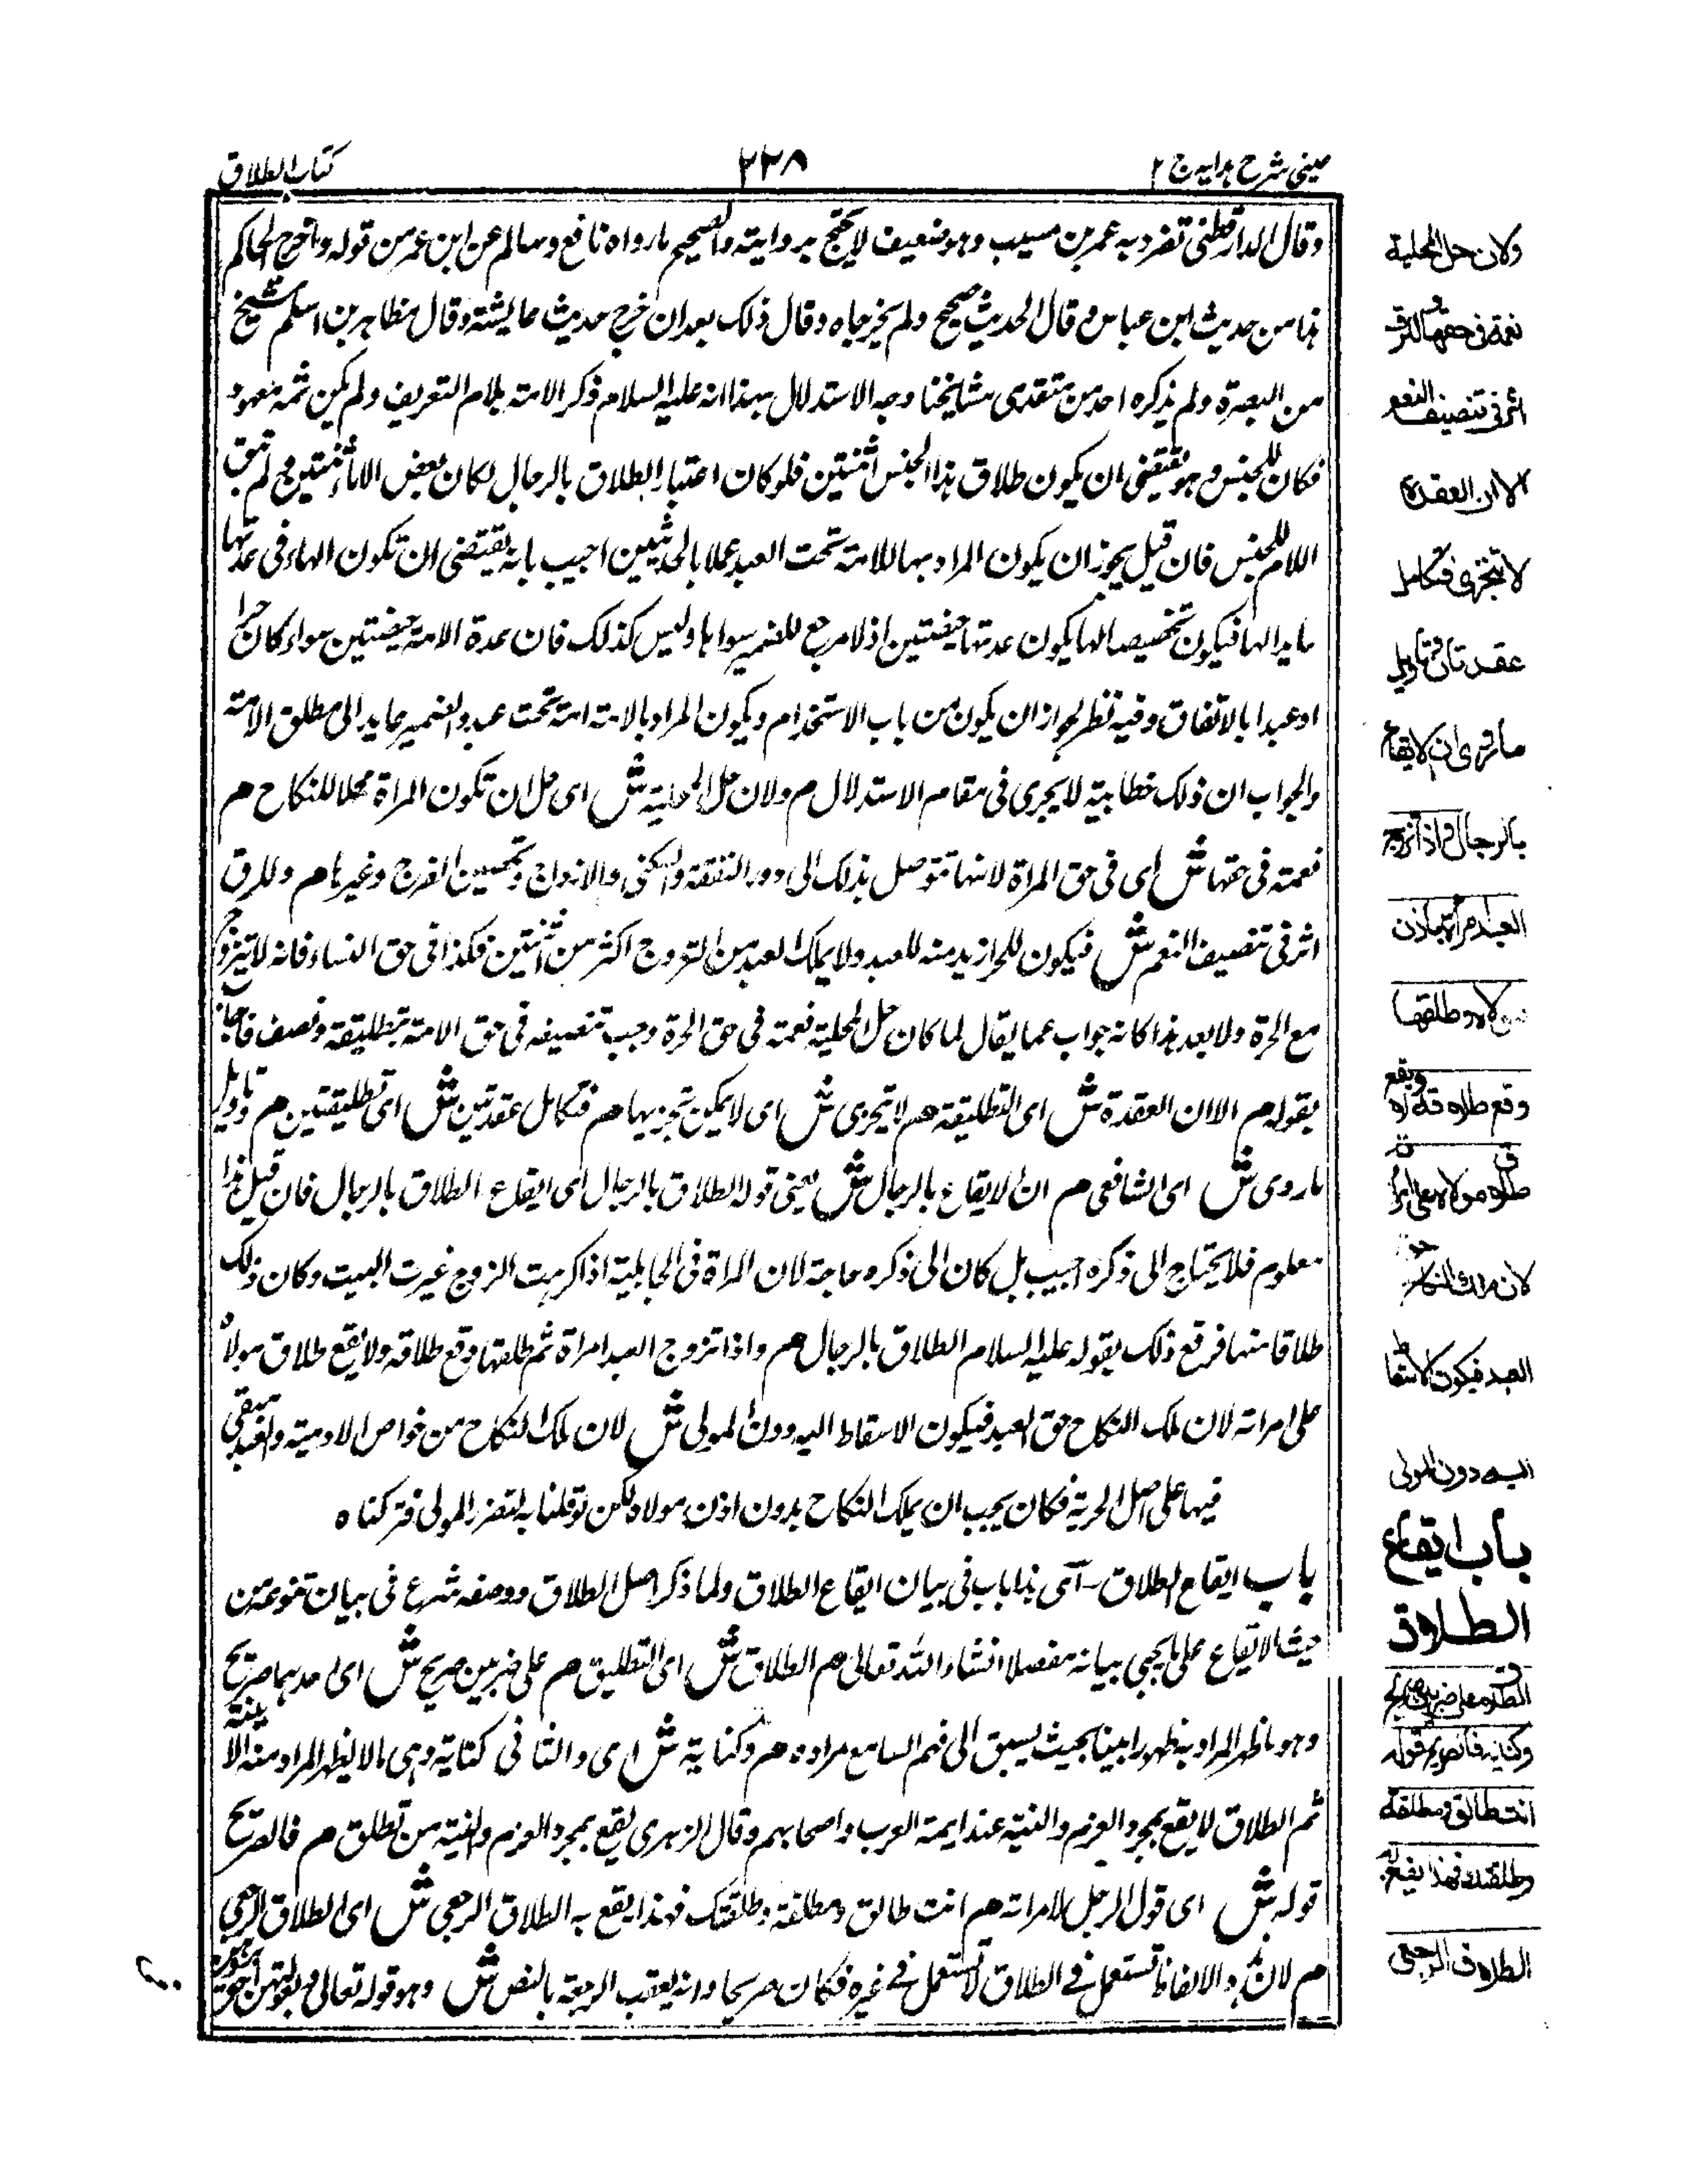 عینی شرح ہدایہ ج ۲
۲۲۸
کتاب الطلاق
وقال الدارقطنی تفرد به عمر بن مسیب وهو ضعیف لا یحتج بروایته والصحیح ما رواه نافع وسالم عن ابن عمر من قوله واخرج الحاکم
هذا من حدیث ابن عباس وقال الحدیث صحیح ولم یخرجاه وقال ذلک بعد ان خرج حدیث عایشة وقال مظاهر بن اسلم شیخ
من البصرة ولم یذکره احد من متقدمی مشایخنا وجه الاستدلال بهذا انه علیه السلام ذکر الامة بلام التعریف ولم یکن ثمه معهود
فکان للجنس وهو یقتضی ان یکون طلاق هذا الجنس اثنتین فلو کان اعتبار الطلاق بالرجال لکان بعض الاماء ثنتین فلم تبق
اللام للجنس فان قیل یجوز ان یکون المراد بها الامة تحت العبد عملا بالحدیثین اجیب بانه یقتضی ان تکون الهاء فی عدتها
عایدا الیها فیکون تخصیصا لها بکون عدتها حیضتین اذ لا مرجع للضمیر سواها ولیس کذلک فان عدة الامة حیضتین سواء کان حرا
او عبدا بالاتفاق وفیه نظر لجواز ان یکون من باب الاستخدام ویکون المراد بالامة امة تحت عبد والضمیر عاید الی مطلق الامة
والجواب ان ذلک خطابیة لا یجری فی مقام الاستدلال م ولان حل المحلیة ش ای حل ان تکون المراة محلا للنکاح م
نعمة فی حقها ش ای فی حق المراة لانها تتوصل بذلک الی درور النفقة والسکنی والازدواج وتحصین الفرج وغیرها م وللرق
اثر فی تنصیف النعم ش فیکون للحر ازید منه للعبد ولا یملک العبد من التزوج اکثر من اثنتین فکذا فی حق النساء فانه لا تتزوج
مع الحرة ولا بعد هذا کانه جواب عما یقال لما کان حل المحلیة نعمة فی حق الحرة وجب تنصیفه فی حق الامة بتطلیقة ونصف فاجاب
بقوله م الا ان العقدة ش ای التطلیقة م لا تتجزی ش ای لا یمکن تجزیها م فتکامل عقدتین ش ای تطلیقتین م وتاویل
ما روی ش ای الشافعی م ان الایقاع بالرجال ش یعنی قوله الطلاق بالرجال ای ایقاع الطلاق بالرجال فان قیل هذا
معلوم فلا یحتاج الی ذکره اجیب بل کان الی ذکره حاجة لان المراة فی الجاهلیة اذا کرهت الزوج غیرت البیت وکان ذلک
طلاقا منها فرفع ذلک بقوله علیه السلام الطلاق بالرجال م واذا تزوج العبد امراة ثم طلقها وقع طلاقه ولا یقع طلاق مولاه
علی امراته لان ملک النکاح حق العبد فیکون الاسقاط الیه دون المولی ش لان ملک النکاح من خواص الادمیة والعبد مبقی
فیها علی اصل الحریة فکان یجب ان یملک النکاح بدون اذن مولاه لکن لو قلنا به لتضرر المولی فترکناه
باب ایقاع الطلاق - آی هذا باب فی بیان ایقاع الطلاق ولما ذکر اصل الطلاق ووصفه شرع فی بیان تنوعه من
حیث الایقاع علی ما یجیی بیانه مفصلا انشاء الله تعالی م الطلاق ش ای التطلیق م علی ضربین صریح ش ای احدهما صریح
وهو ما ظهر المراد به ظهورا بینا بحیث یسبق الی فهم السامع مراده م وکنایة ش ای والثانی کنایة وهی ما لا یظهر المراد منه الا بنیة
ثم الطلاق لا یقع بمجرد العزم والنیة عند ایمة العرب واصحابهم وقال الزهری یقع بمجرد العزم والنیة من تطلق م فالصریح
قوله ش ای قول الرجل لامراته م انت طالق ومطلقة وطلقتک فهذا یقع به الطلاق الرجعی ش ای الطلاق الرجعی
م لان هذه الالفاظ تستعمل فی الطلاق لا تستعمل فی غیره فکان صریحا وانه یعقب الرجعة بالنص ش وهو قوله تعالی وبعولتهن احق
ولان حل المحلیة
نعمة فی حقها وللرق
اثر فی تنصیف النعم
الا ان العقدة
لا تتجزی فتکامل
عقدتان وتاویل
ما روی ان الایقاع
بالرجال واذا تزوج
العبد امرأة باذن
مولاه وطلقها
وقع طلاقه ولا یقع
طلاق مولاه علی امرأته
لان ملک النکاح حق
العبد فیکون الاسقاط
الیه دون المولی
باب ایقاع
الطلاق
الطلاق علی ضربین صریح
وکنایة فالصریح قوله
انت طالق ومطلقة
وطلقتک فهذا یقع به
الطلاق الرجعی